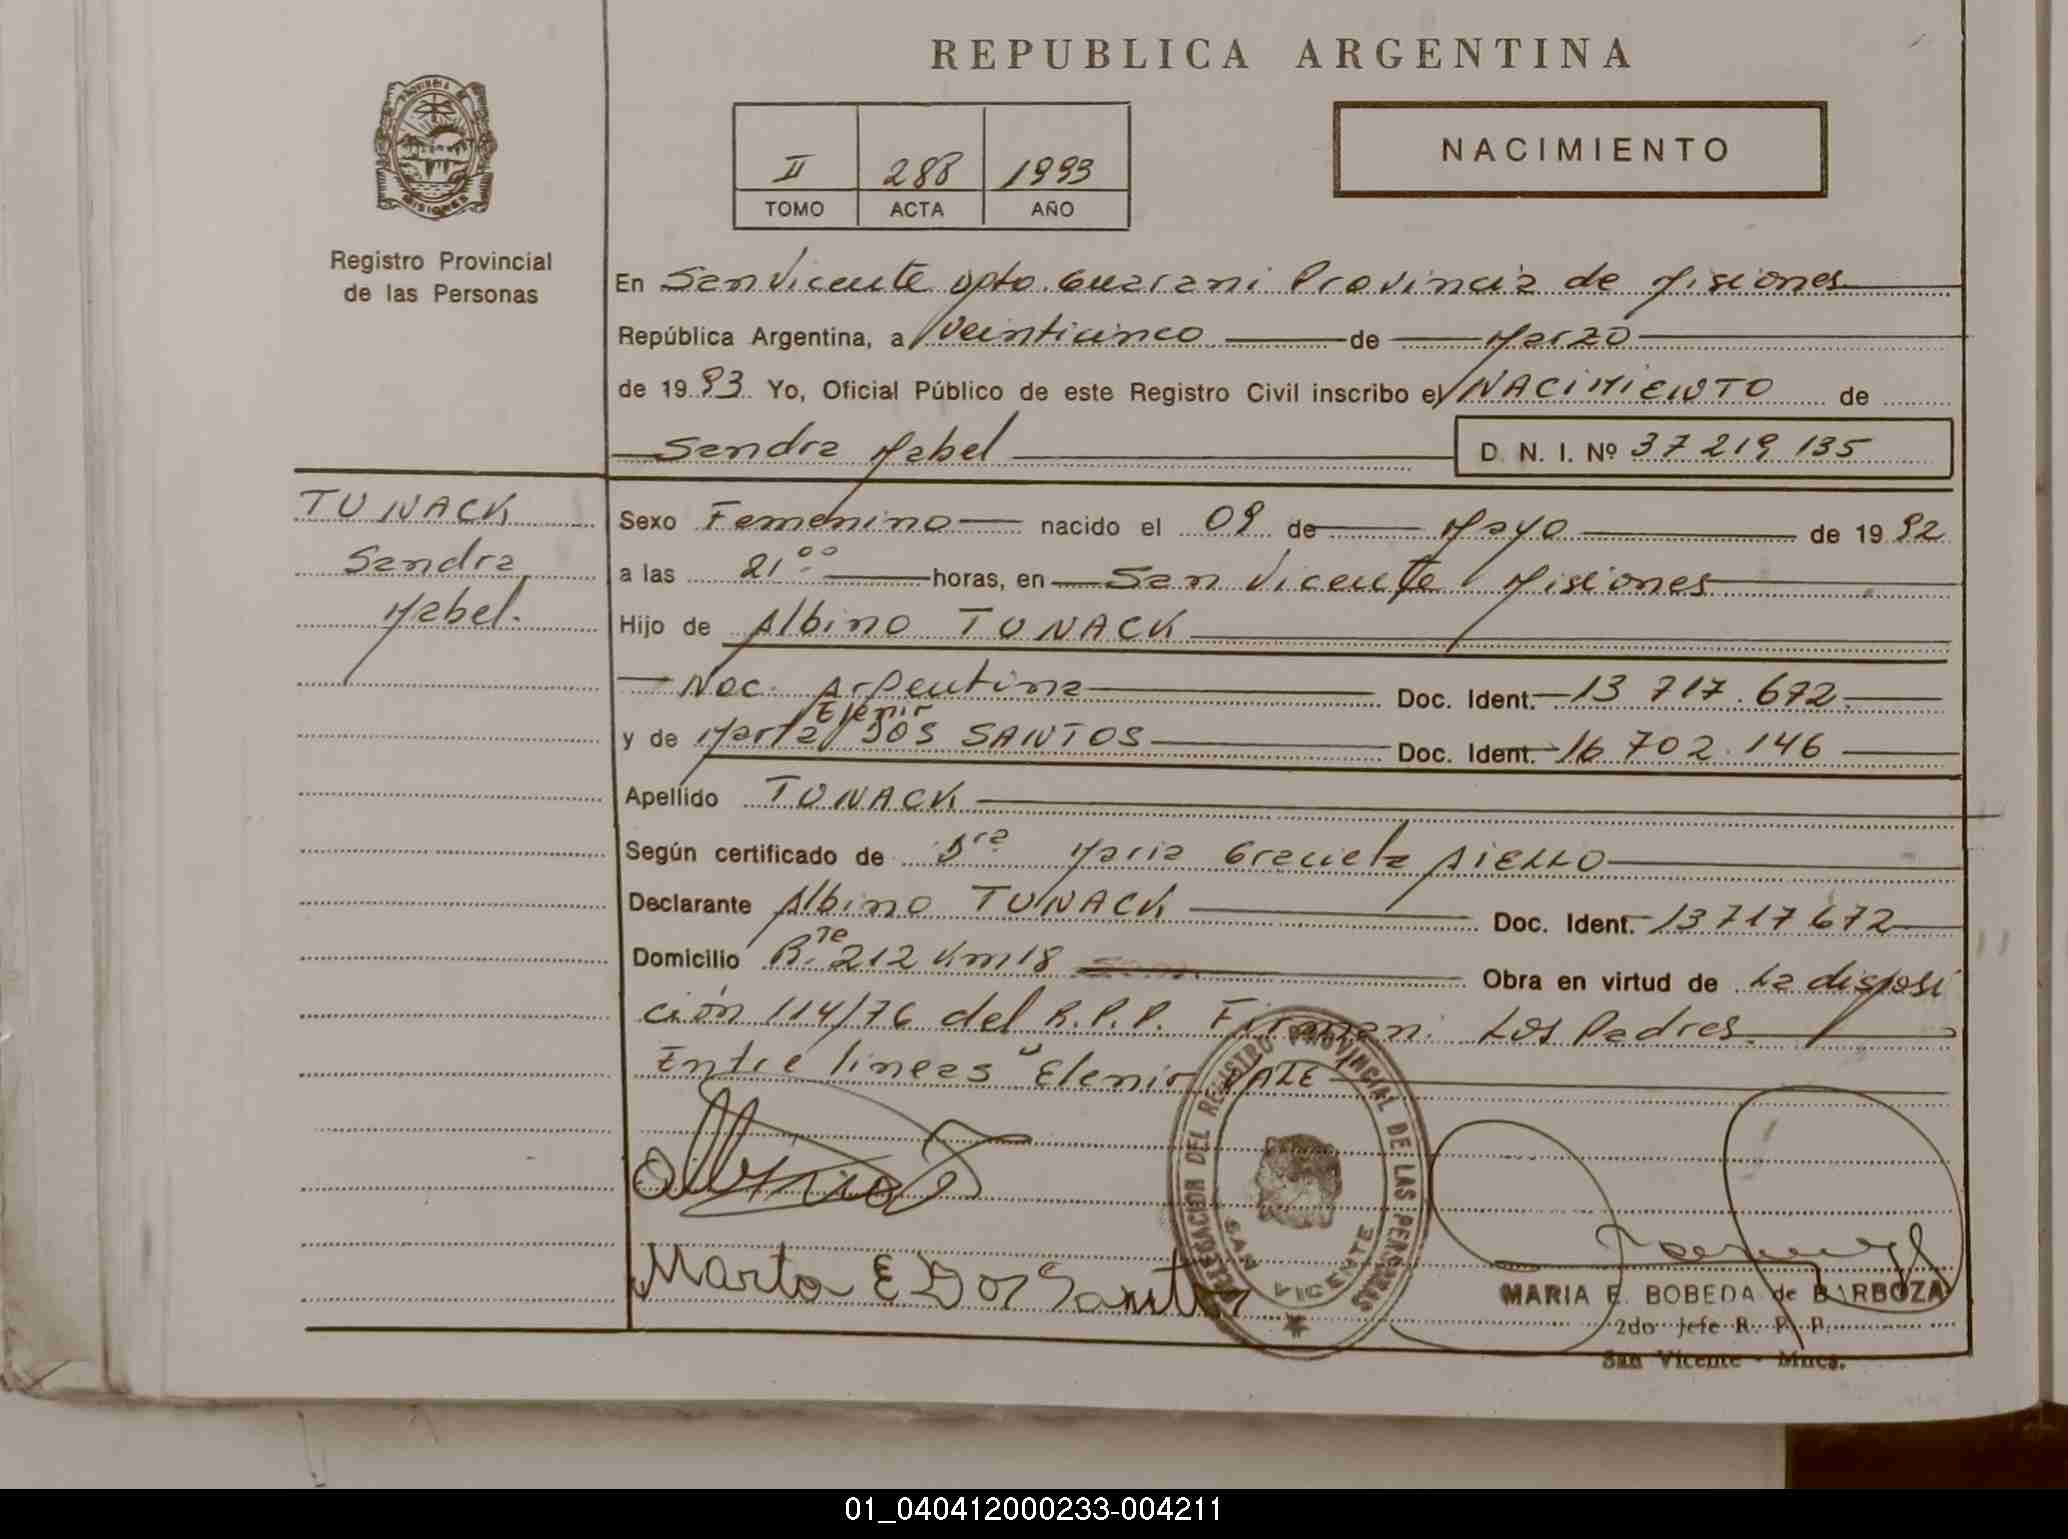 REPUBLICA ARGENTINA
PROVINCIA DE
MISIONES
Registro Provincial
de las Personas
II 288 1993
TOMO ACTA AÑO
NACIMIENTO
En San Vicente Dpto. Guarani Provincia de Misiones
República Argentina, a Veinticinco de Marzo
de 1993 Yo, Oficial Público de este Registro Civil inscribo el NACIMIENTO de
Sandra Mabel D. N. I. Nº 37 219 135
TUNACK
Sandra
Mabel.
Sexo Femenino nacido el 09 de Mayo de 1992
a las 21 ºº horas, en San Vicente Misiones
Hijo de Albino TUNACK
Nac. Argentina Doc. Ident. 13 717.672
Elenir
y de Marta DOS SANTOS Doc. Ident. 16 702.146
Apellido TUNACK
Según certificado de Dra Maria Graciela AIELLO
Declarante Albino TUNACK Doc. Ident. 13 717 672
Domicilio R.te 212 Km 18 Obra en virtud de La disposi
ción 114/76 del R.P.P. Firman: Los Padres.
Entre lineas "Elenir VALE
DELEGACION DEL REGISTRO PROVINCIAL DE LAS PERSONAS
SAN VICENTE
Marta E Dos Santos
MARIA E. BOBEDA de BARBOZA
2do Jefe R. P. P.
San Vicente - Mnes.
01_040412000233-004211